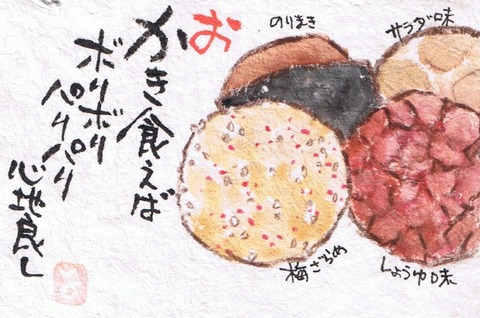 おかき食えば
ボリボリ
パリパリ
心地良し
のりまき
サラダ味
梅ざらめ
しょうゆ味